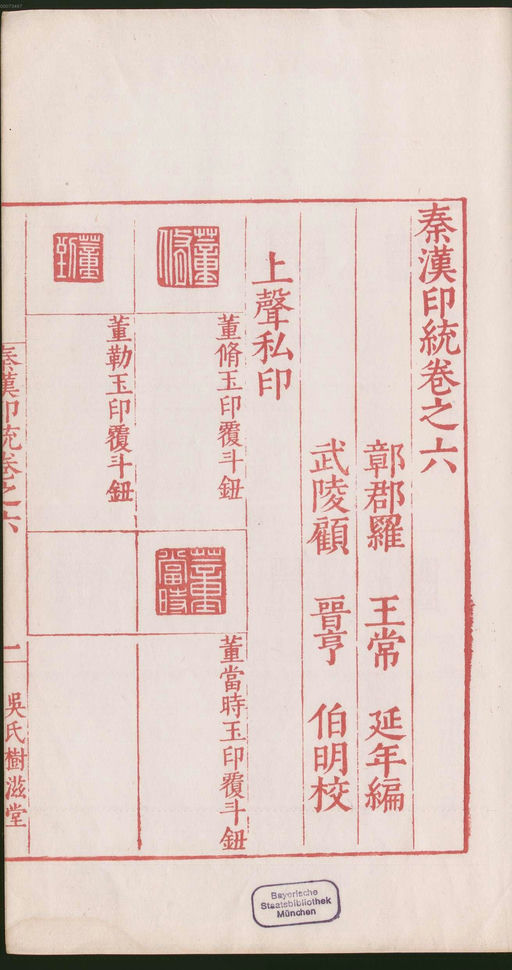 秦漢印統卷之六
鄣郡羅 王常 延年編
武陵顧 晉亨 伯明校
上聲私印
董脩
董脩玉印覆斗鈕
董當時
董當時玉印覆斗鈕
董勒
董勒玉印覆斗鈕
秦漢印統卷之六
一
吳氏樹滋堂
Bayerische
Staatsbibliothek
München